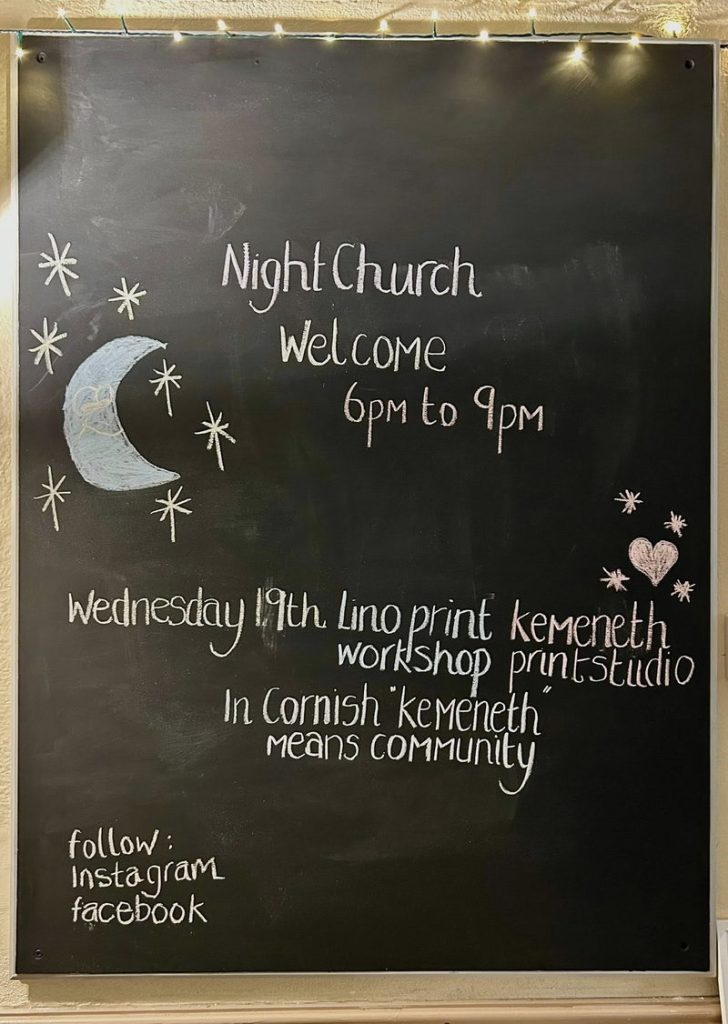 Night Church
Welcome
6pm to 9pm
Wednesday 19th Lino print kemeneth
workshop printstudio
In Cornish "kemeneth"
means community
follow:
Instagram
facebook